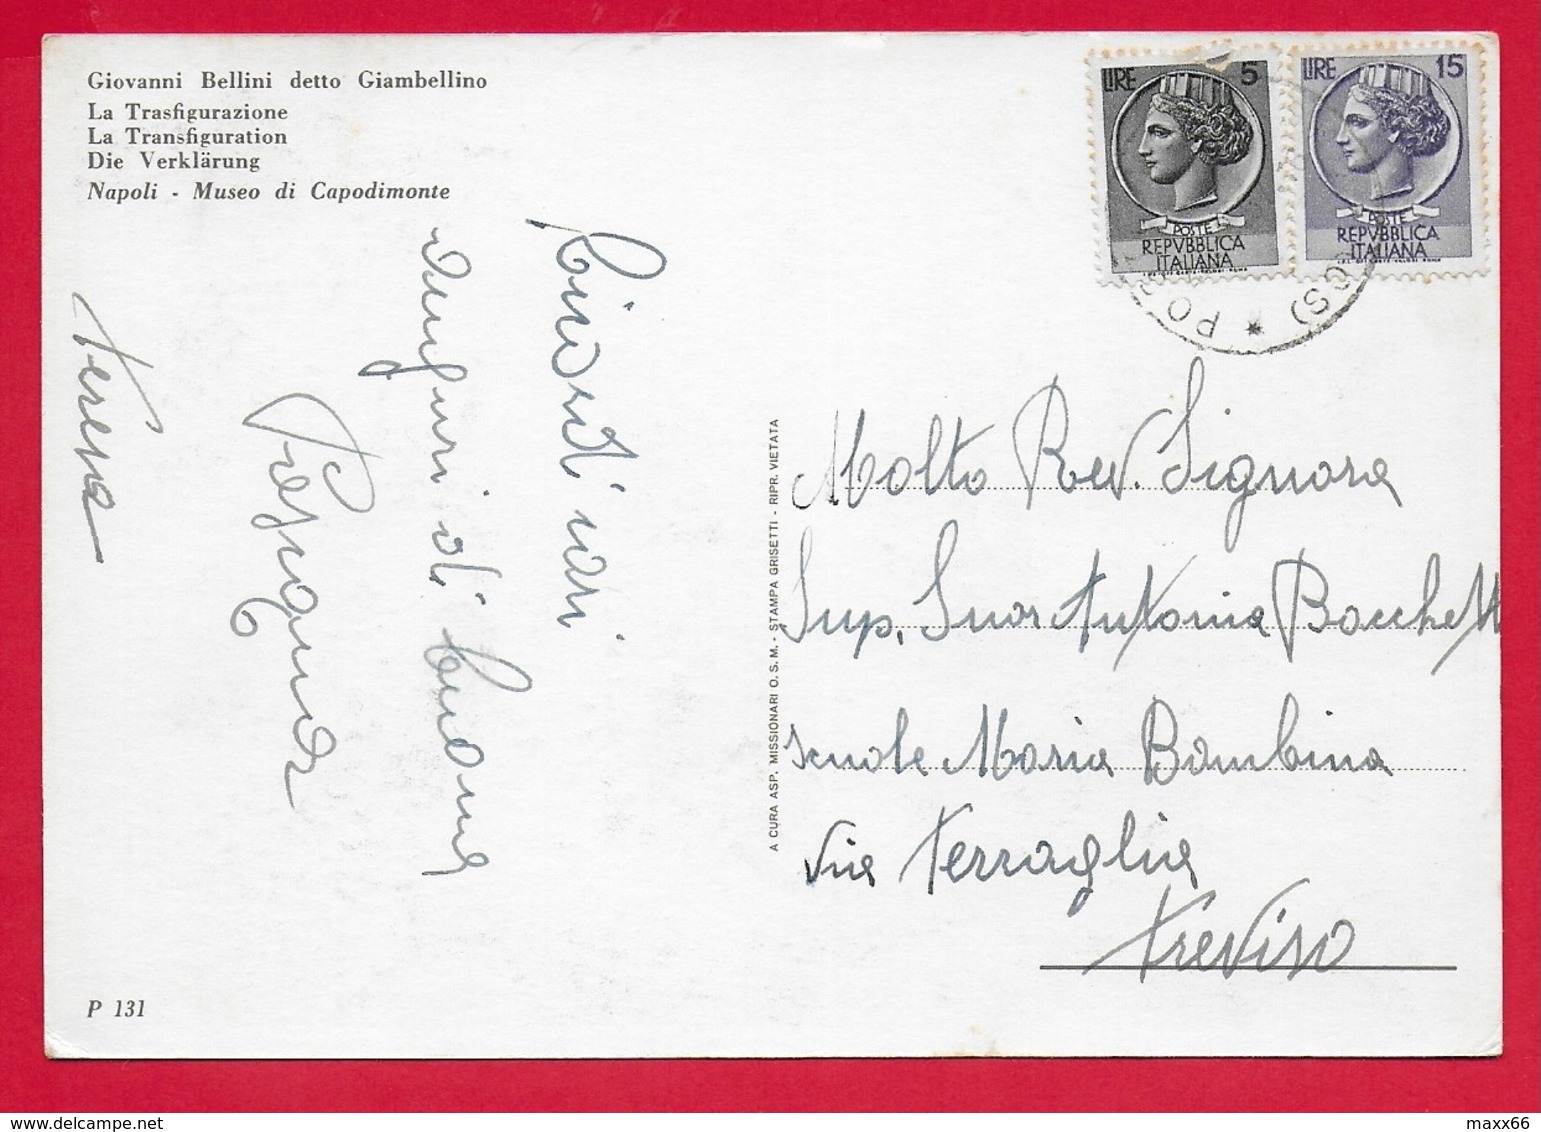 Giovanni Bellini detto Giambellino
La Trasfigurazione
La Transfiguration
Die Verklärung
Napoli - Museo di Capodimonte
Ricordi cari
Auguri di buona
Pasqua
Teresa
P 131
A CURA ASP. MISSIONARI O.S.M. - STAMPA GRISETTI - RIPR. VIETATA
LIRE 5
POSTE
REPVBBLICA
ITALIANA
LIRE 15
POSTE
REPVBBLICA
ITALIANA
Molto Rev. Signora
Sup. Suor Antonia Bacchett
Scuole Maria Bambina
Via Terraglia
Treviso
maxx66